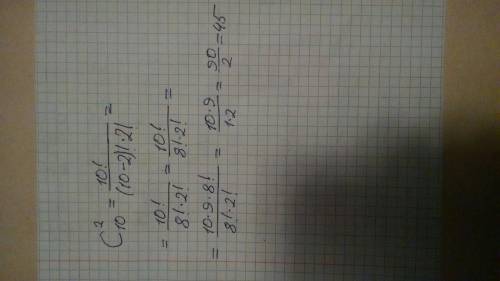 C₁₀² = 10! / (10-2)!·2! =
= 10! / 8!·2! = 10! / 8!·2! =
= 10·9·8! / 8!·2! = 10·9 / 1·2 = 90 / 2 = 45